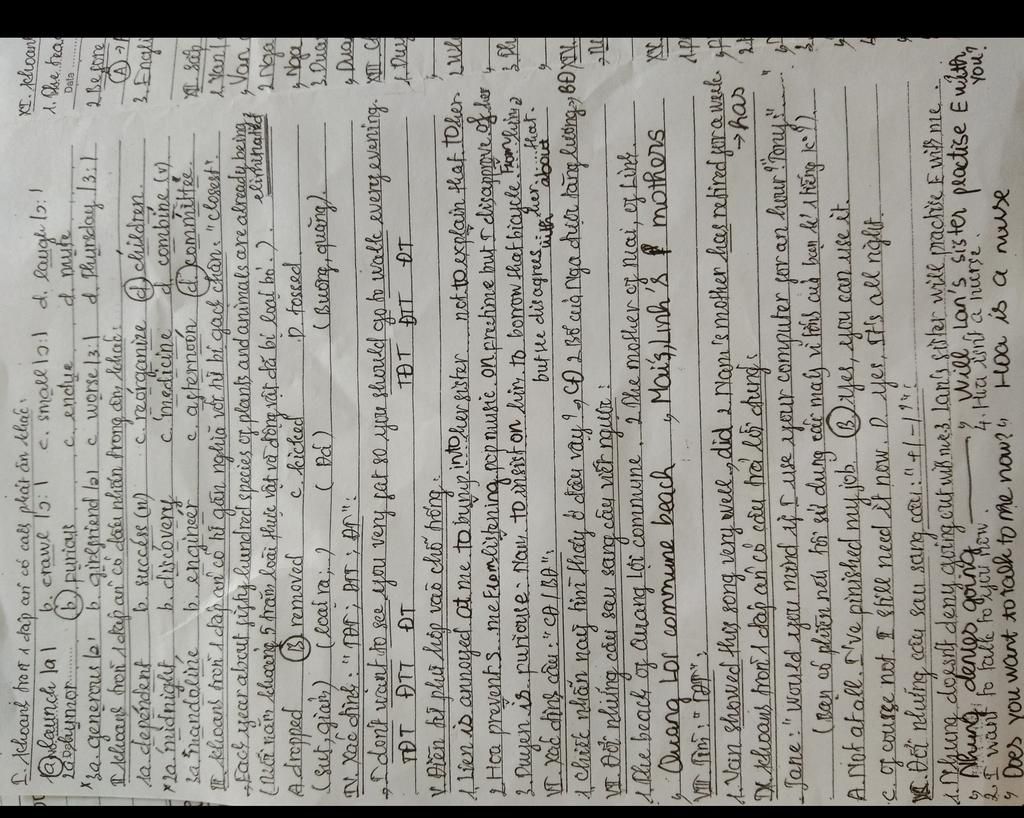 I. Khoanh tròn 1 đáp án có cách phát ân khác:
1a launch |a| b. crawl |ɔ:| c. small |ɔ:| d. laugh |ɔ:|
2a physion b punish c. endue d. nuse
3a generous |ə| b. girlfriend |ə| c worse |ɜ:| d. Thursday |ɜ:|
II Khoanh tròn 1 đáp án có dấu nhấn trọng âm khác:
1a. dependent b. success (n) c. reorganize d children.
2a. midnight b. discovery c. medicine d. combine (v)
3a. mandatine b. engineer c. afternoon d committee.
III khoanh tròn 1 đáp án có từ gần nghĩa với từ bị gạch chân: "closest".
Each year about fifty hundred species of plants and animals are already being eliminated
(Mỗi năm khoảng 5 trăm loài thực vật và động vật đã bị loại bỏ.)
A. dropped B removed c. kicked D tossed
(sút, giảm) (loại ra,) (Đá) (Buông, quăng)
IV Xác định: "TĐT; ĐT; ĐT":
I don't want to see you very fat so you should go to walk every evening.
TĐT ĐTT ĐT TĐT ĐT ĐT
V. Điền từ phù hợp vào chỗ trống.
1. Lien is annoyed at me to bump into her sister not to explain that to her
2. Hoa prevents me from listening pop music on pretime but I disapprove of her
3. Duyen is furious Nam to insist on him to borrow that bicycle from him
but he disagrees with her about that.
VI. Xác định câu: "CĐ/BĐ":
1. Chiếc nhẫn này tìm thấy ở đâu vậy? CĐ 2 Bố của nga được tăng lương BĐ
VII Đổi những câu sau sang câu viết ngược:
1. The beach of quang Lợi commune. 2 The mother of Mai, of Linh.
Quang Lợi commune beach Mai's, Linh's mothers
VIII Tìm: "ĐT":
1. Van showed this song very well, did 2 Nam's mother has retired for a week → has
IX. Khoanh tròn 1 đáp án có câu trả lời đúng:
Jane: "Would you mind if I use your computer for an hour?" "Tony:"
(Bạn có phiền nếu tôi sử dụng cái máy vi tính của bạn kế tiếng k°?)
A. Not at all. I've finished my job. B yes, you can use it.
C. Of course not. I still need it now. D yes, It's all right.
X. Đổi những câu sau sang câu: "+ | - | ?":
1. Nhung doesn't deny going out with me 3 Lan's sister will practise E with me.
Nhung denies going Will Lan's sister practise E with you?
2. I want to talk to you now. 4. Hoa isn't a nurse.
Does you want to talk to me now? Hoa is a nuse
XI. Khoanh
Date
2. Before
3. Engli
XII. Sắp
1. Van
Van
2. Nga
Nga
3. Dua